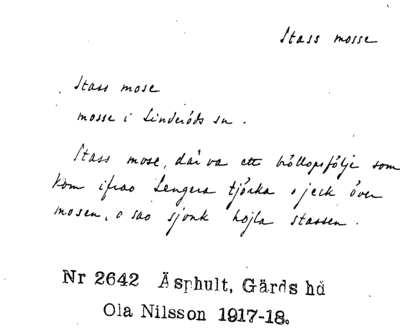 Stass mosse
Stass mose
mosse i Linderöds sn.
Stass mose, där va ett bröllopsfölje som
kom ifrao Lengera tjörka o jeck över
mosen, o sao sjonk hojla stassen.
Nr 2642 Äsphult, Gärds hd
Ola Nilsson 1917-18.